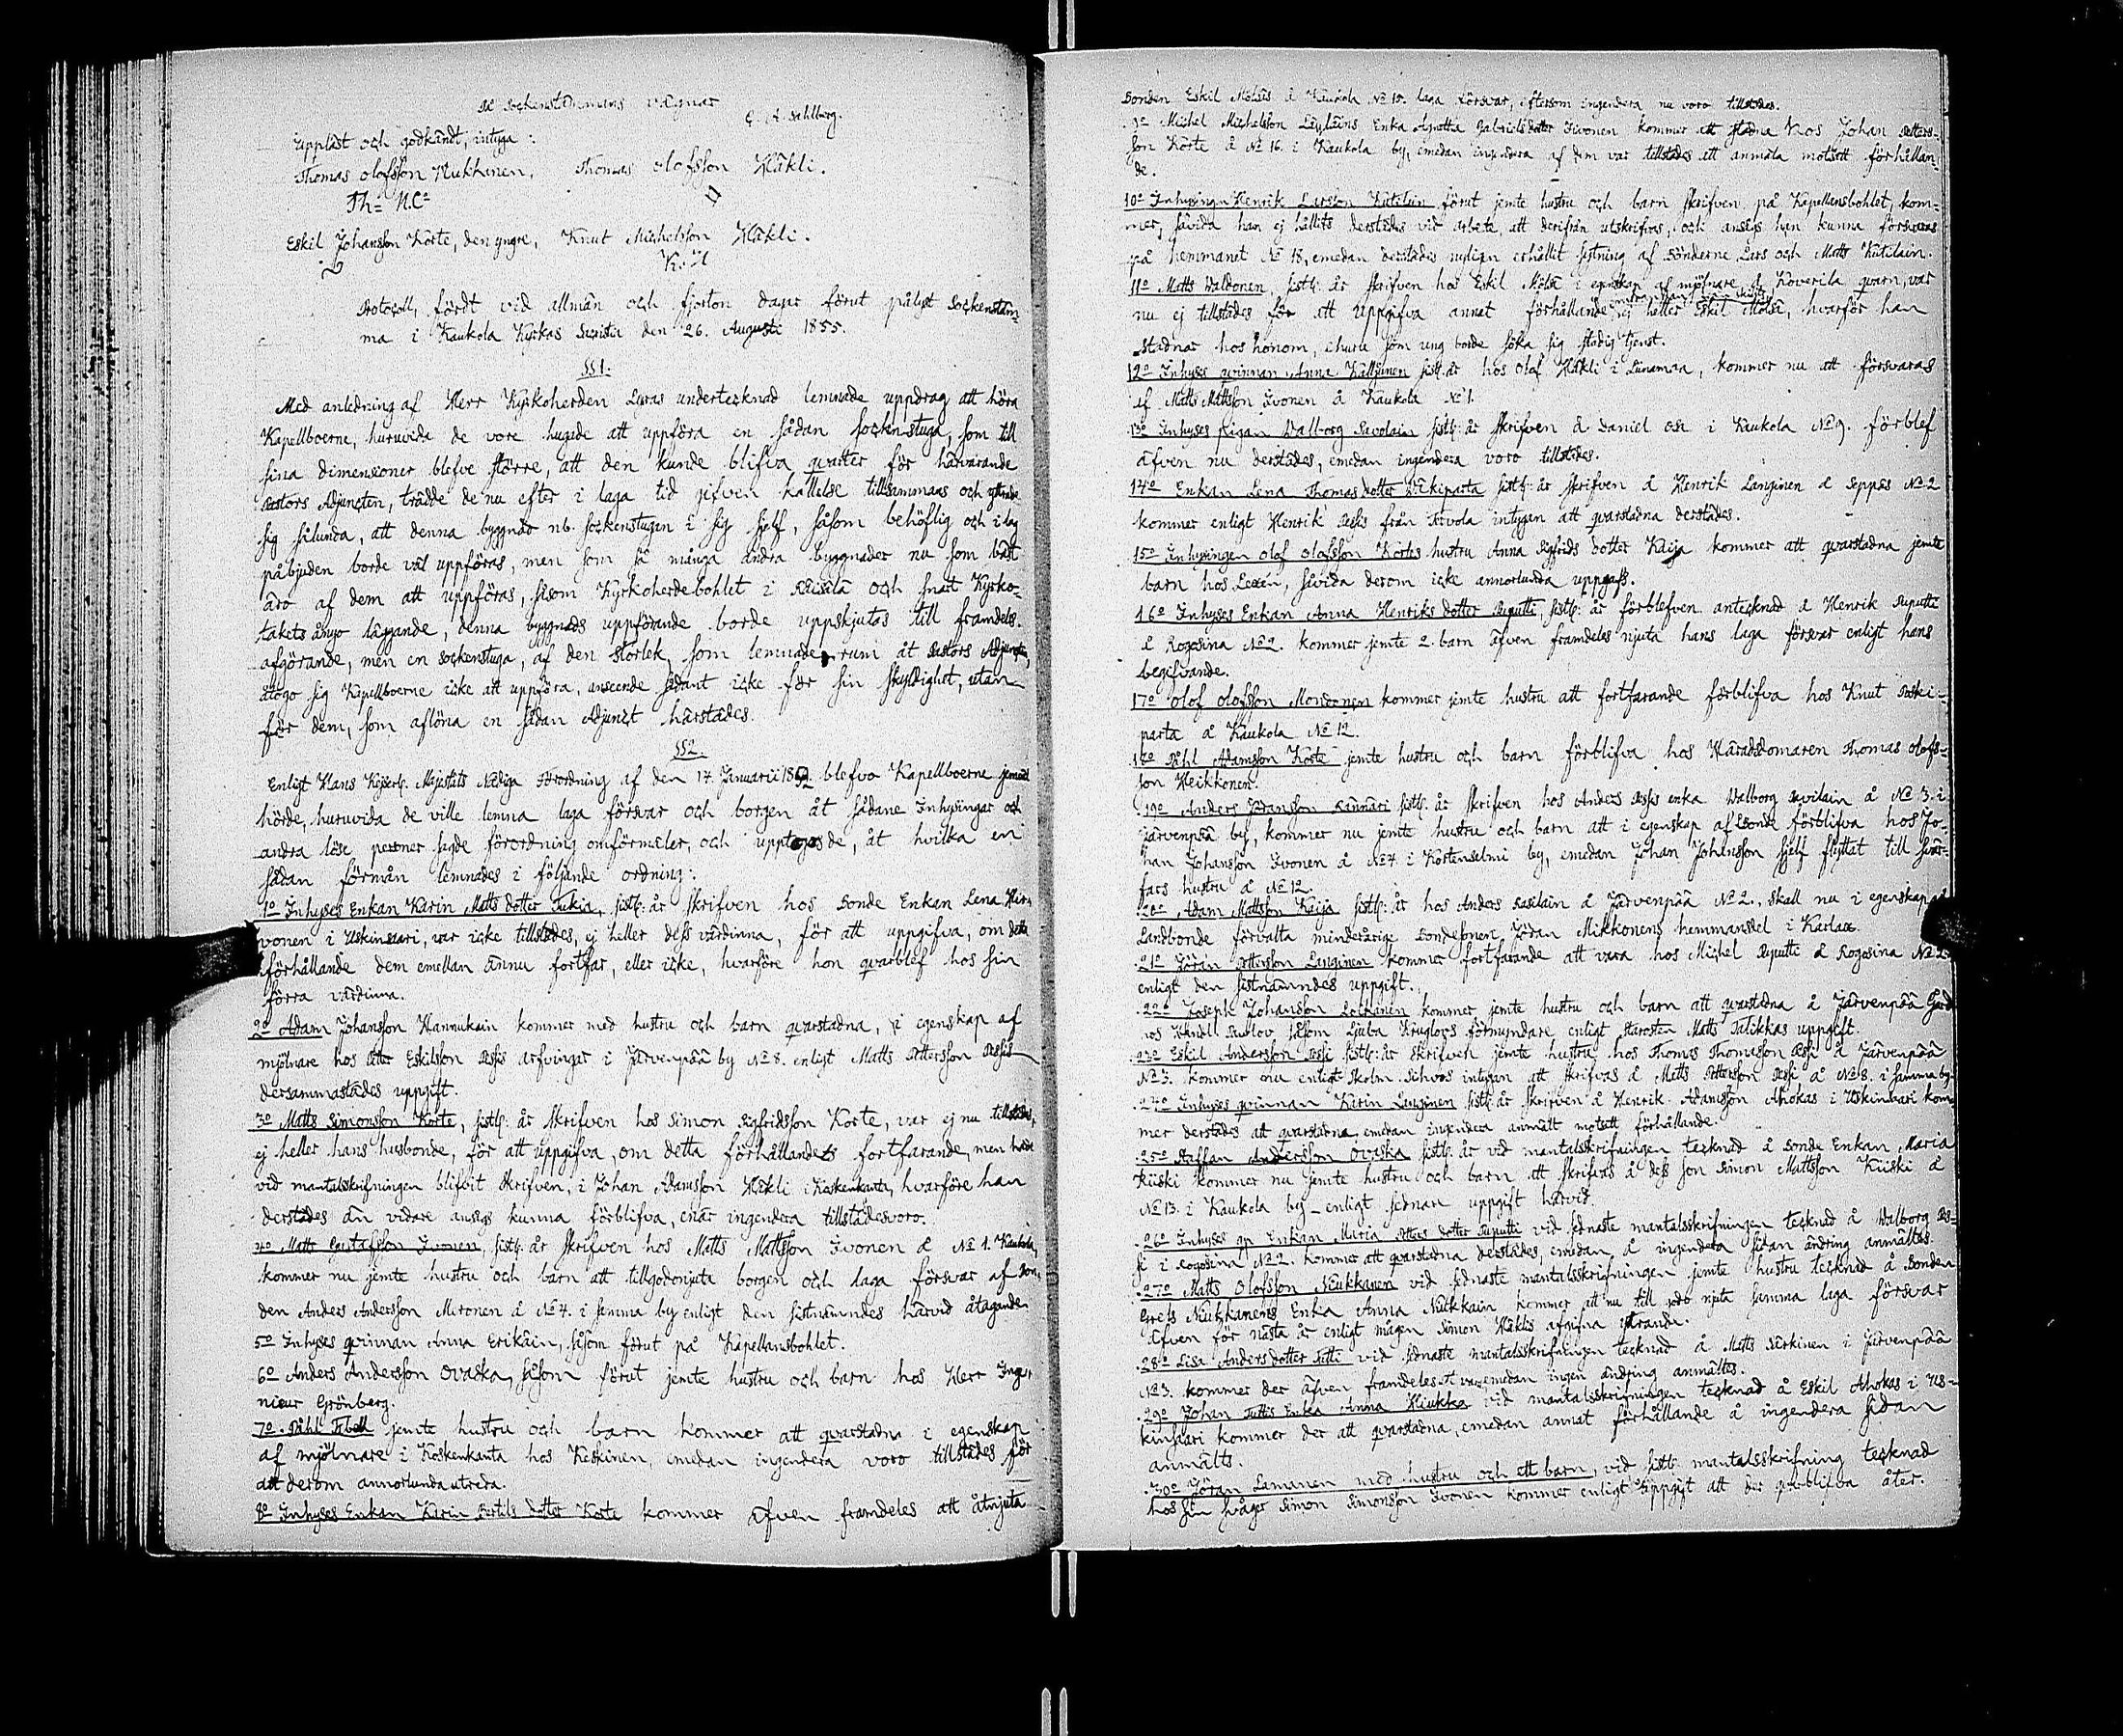 På Sockenstämmans vägnar
C. A. Sahlberg.
Uppläst och godkändt, intyga:
Thomas Olofsson Nukkinen, Thomas Olofsson Häkli.
Th= N.C=
Eskil Johansson Korte, den yngre, Knut Michelsson Häkli.
K. H
Protocoll, fördt vid allmän och fjorton dagar förut pålyst Sockenstäm-
ma i Kaukola Kyrkas Sacristia den 26. Augusti 1855.
§§1.
Med anledning af Herr Kyrkoherden Lyras undertecknad lemnade uppdrag att höra
Kapellboerne, huruvida de vore hugade att uppföra en sådan sockenstuga, som till
sina dimensioner blefve större, att den kunde blifva qvarter för härvarande
Pastors Adjuncten, trädde de nu efter i laga tid gifven kallelse tillsammans och yttrade
sig sålunda, att denna byggnad nb. sockenstugan i sig sjelf, såsom behöflig och i lag
påbjuden borde väl uppföras, men som så många andra byggnader nu som bäst
äro af dem att uppföras, såsom Kyrkoherdebohlet i Räisälä och snart Kyrko-
takets ånyo läggande, denna byggnads uppförande borde uppskjutas till framdeles
afgörande, men en sockenstuga, af den storlek, som lemnade rum åt Pastors Adjuncten,
åtogo sig Kapellboerne icke att uppföra, anseende sådant icke för sin skyldighet, utan
för dem, som aflöna en sådan Adjunct härstädes.
§§2.
Enligt Hans Kejserl. Majestäts Nådiga Förordning af den 17 Januarii 1852 blefvo Kapellboerne jemväl
hörde, huruvida de ville lemna laga försvar och borgen åt sådane Inhysingar och
andra löse personer sagde förordning omförmäler, och upptogos de, åt hvilka en
sådan förmån lemnades i följande ordning:
1o Inhyses Enkan Karin Matts dotter Tukia, sistl. år skrifven hos Bonde Enkan Lena Hir-
vonen i Uskinsaari, var icke tillstädes, ej heller dess värdinna, för att uppgifva, om detta
förhållande dem emellan ännu fortfar, eller icke, hvarföre hon qvarblef hos sin
förra värdinna.
2o Adam Johansson Hannukain kommer med hustru och barn qvarstadna, i egenskap af
mjölnare hos Petter Eskilsson Pessis arfvingar i Järvenpää by No 8. enligt Matts Pettersson Pessis
dersammastädes uppgift.
3o Matts Simonsson Korte, sistl. år skrifven hos Simon Sigfridsson Korte, var ej nu tillstädes,
ej heller hans husbonde, för att uppgifva, om detta förhållandets fortfarande, men hade
vid mantalsskrifningen blifvit skrifven, i Johan Adamsson Häkli i Koskenkanta, hvarföre han
derstädes än vidare ansågs kunna förblifva, enär ingendera tillstädesvoro.
4o Matts Gustafsson Ivonen, sistl. år skrifven hos Matts Mattsson Ivonen å No 1. Kaukola,
kommer nu jemte hustru och barn att tillgodonjuta borgen och laga försvar af Bon-
den Anders Andersson Mironen å No 4. i samma by enligt den sistnämndes härvid åtagande.
5o Inhyses qvinnan Anna Erikäin, såsom förut på Kapellansbohlet.
6o Anders Andersson Ovaska, såsom förut jemte hustru och barn hos Herr Inge-
nieur Grönberg.
7o Påhl Tiboll jemte hustru och barn kommer att qvarstadna i egenskap
af mjölnare i Koskenkanta hos Keskinen, emedan ingendera voro tillstädes för
att derom annorlunda utreda.
8o Inhyses Enkan Karin Bertils dotter Korte kommer äfven framdeles att åtnjuta
Bonden Eskil Mölsäs å Kaukola No 15. laga försvar, eftersom ingendera nu voro tillstädes.
9o Michel Michelsson Läyläins Enka Agnetha Gabrielsdotter Ivonen kommer att stadna hos Johan Petters-
son Korte å No 16. i Kaukola by, emedan ingendera af dem var tillstädes att anmäla motsatt förhållan-
de.
10o Inhysingen Henrik Larsson Kutilain förut jemte hustru och barn skrifven på Kapellansbohlet, kom-
mer, såvida han ej hållits derstädes vid arbete, att derifrån utskrifvas, och ansågs han kunna försvaras
på hemmanet No 18, emedan derstädes nyligen erhållit sytning af Bönderne Lars och Matts Kutilain.
11o Matts Waldonen, sistl. år skrifven hos Eskil Mölsä i egenskap af mjölnare å Koverila qvarn, var
nu ej tillstädes för att uppgifva annat förhållande, ej heller Eskil Mölsä, hvarför han
stadnar hos honom, churu som ung borde söka sig stadig tjenst.
12o Inhyses qvinnan Anna Kälkjinen sistl. år hos Olof Häkli i Lunamaa, kommer nu att försvaras
af Matts Mattsson Ivonen å Kaukola No 1.
13o Inhyses pigan Walborg Savolain sistl. år skrifven å Daniel Asi i Kaukola No 9. förblef
äfven nu derstädes, emedan ingendera voro tillstädes.
14o Enkan Lena Thomas dotter Näkiparta sistl. år skrifven å Henrik Langinen å Seppäs No 2
kommer enligt Henrik Pessis från Tervola intygan att qvarstadna derstädes.
15o Inhysingen Olof Olofsson Kortes hustru Anna Sigfrids dotter Kaija kommer att qvarstadna jemte
barn hos Lexen, såvida derom icke annorlunda uppgafs.
16o Inhyses Enkan Anna Henriks dotter Reputti, sistl. år förblefven antecknad å Henrik Reputti
å Rogosina No 2. kommer jemte 2. barn äfven framdeles njuta hans laga försvar enligt hans
begifvande.
17o Olof Olofsson Mononen kommer jemte hustru att fortfarande förblifva hos Knut Näki-
parta å Kaukola No 12.
18o Påhl Adamsson Korte jemte hustru och barn förblifva hos Häradsdomaren Thomas Olofs-
son Heikkonen.
19o Anders Göransson Kannari sistl. år skrifven hos Anders Pessis enka Walborg Savilain å No 3. i
Järvenpää by, kommer nu jemte hustru och barn att i egenskap af Bonde förblifva hos Jo-
han Johansson Ivonen å No 4 i Kortenselmi by, emedan Johan Johansson sjelf flyttat till Svär-
fars hustru å No 12.
20o Adam Mattsson Kaija sistl. år hos Anders Sasilain å Järvenpää No 2., skall nu i egenskap af
Landbonde förvalta minderårige Bondesonen Jöran Mikkonens hemmansdel i Karlax.
21o Jöran Pettersson Langinen kommer fortfarande att vara hos Michel Reputti å Rogosina No 2
enligt den sistnämndes uppgift.
22o Joseph Johansson Loikkanen kommer jemte hustru och barn att qvarstadna å Järvenpää Gård
hos Handl. Pavlov såsom Ljuba Kruglovs förmyndare enligt starosten Matts Talikkas uppgift.
23o Eskil Andersson Pessi sistl. år skrifven jemte hustru hos Thomas Thomasson Pessi å Järvenpää
No 3. kommer nu enligt Skolm. Sihvos intygan att skrifvas å Matts Pettersson Pessi å No 8. i samma by.
24o Inhyses qvinnan Karin Langinen sistl. år skrifven å Henrik Adamsson Ahokas i Uskinsaari kom-
mer derstädes att qvarstadna, emedan ingendera anmält motsatt förhållande.
25o Staffan Andersson Ovaska sistl. år vid mantalsskrifningen tecknad å Bonde Enkan Maria
Kiiski kommer nu jemte hustru och barn att skrifvas å dess son Simon Mattsson Kiiski å
No 13. i Kaukola by enligt sednare uppgift härvid.
26o Inhyses Enkan Maria Petters dotter Reputti vid sednaste mantalsskrifningen tecknad å Walborg Pes-
si i Rogosina No 2. kommer att qvarstadna derstädes, emedan å ingendera sidan ändring anmältes.
27o Matts Olofsson Neukkanen vid sednaste mantalsskrifningen jemte hustru tecknad å Bonden
Grels Nuukkanens Enka Anna Nuukkain kommer att nu till godo njuta samma laga försvar
äfven för nästa år enligt mågen Simon Häklis afgifna yttrande.
28o Lisa Anders dotter Tatti vid sednaste mantalsskrifningen tecknad å Matts Särkinen i Järvenpää
No 3. kommer der äfven framdeles att vara, emedan ingen ändring anmältes.
29o Johan Tattis Enka Anna Hiukka vid mantalsskrifningen tecknad å Eskil Ahokas i Us-
kinsaari kommer der att qvarstadna, emedan annat förhållande å ingendera sidan
anmälts.
30o Jöran Lamanen med hustru och ett barn, vid sistl. mantalsskrifning tecknad
hos sin svåger Simon Simonsson Ivonen kommer enligt uppgift att der qvarblifva åter.